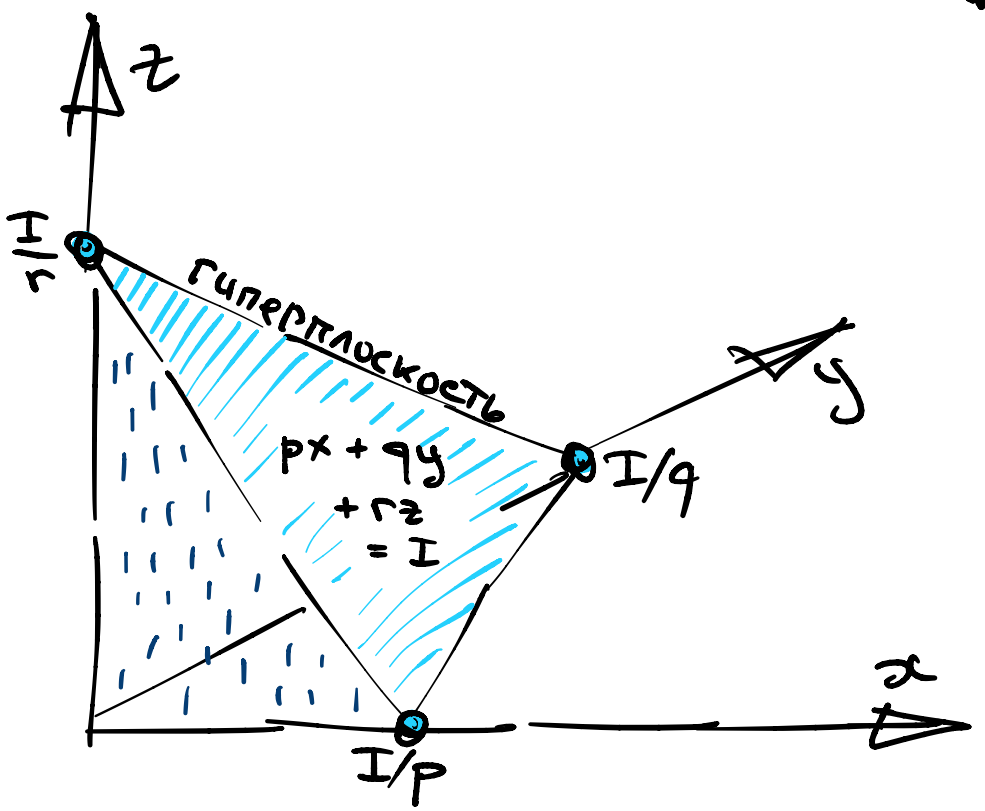 z
I/r
гиперплоскость
y
px + qy
+ rz
= I
I/q
x
I/p